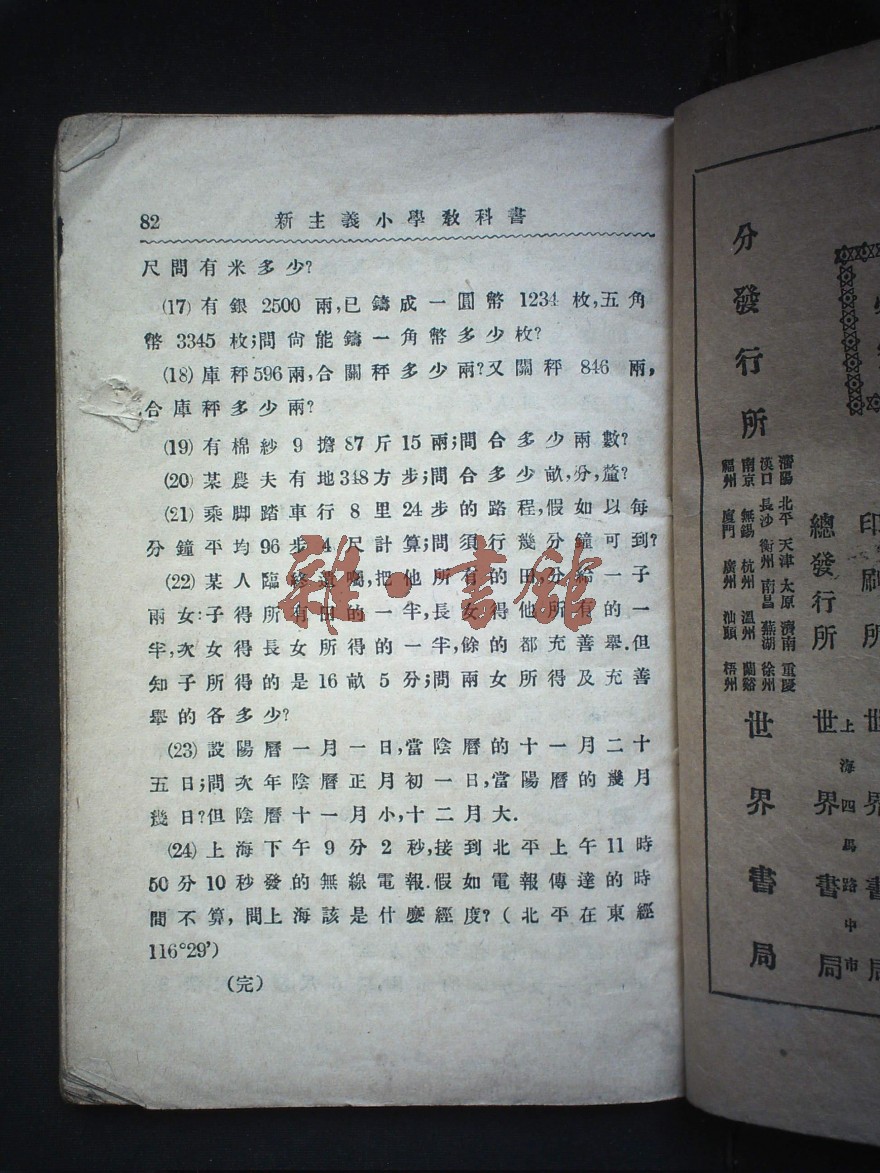 82 新主義小學教科書
尺問有米多少?
(17)有銀 2500 兩,已鑄成一圓幣 1234 枚,五角
幣 3345 枚;問尙能鑄一角幣多少枚?
(18)庫秤596兩,合關秤多少兩?又關秤 846 兩,
合庫秤多少兩?
(19)有棉紗 9 擔 87 斤 15 兩;問合多少兩數?
(20)某農夫有地348方步;問合多少畝,分,釐?
(21)乘脚踏車行 8 里 24 步的路程,假如以每
分鐘平均 96 步 4 尺計算;問須行幾分鐘可到?
(22)某人臨終遺囑,把他所有的田,分給一子
兩女:子得所有田的一半,長女得他所有的一
半,次女得長女所得的一半,餘的都充善舉.但
知子所得的是16畝5分;問兩女所得及充善
舉的各多少?
(23)設陽曆一月一日,當陰曆的十一月二十
五日;問次年陰曆正月初一日,當陽曆的幾月
幾日?但陰曆十一月小,十二月大.
(24)上海下午 9 分 2 秒,接到北平上午 11 時
50 分 10 秒發的無線電報.假如電報傳達的時
間不算,問上海該是什麼經度?(北平在東經
116°29')
(完)
雜·書館
印刷所 世界書局
總發行所 上海四馬路中市 世界書局
分發行所
瀋陽 北平 天津 太原 濟南 重慶
漢口 長沙 衡州 南昌 蕪湖 徐州
南京 無錫 杭州 溫州 蘭谿
福州 廈門 廣州 汕頭 梧州
世界書局